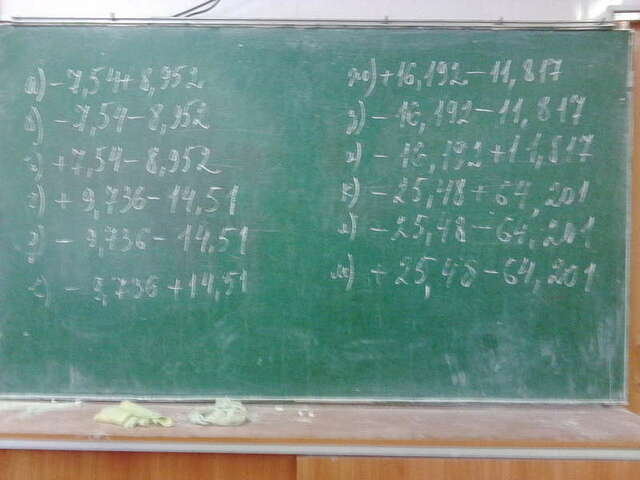 а) -7,54+8,952
б) -7,54-8,952
в) +7,54-8,952
г) +9,736-14,51
д) -9,736-14,51
е) -9,736+14,51
ж) +16,192-11,817
з) -16,192-11,817
и) -16,192+11,817
к) -25,48+64,201
л) -25,48-64,201
м) +25,48-64,201